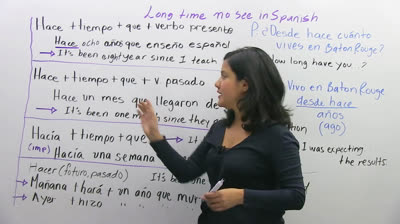 Long time no see in Spanish
Hace + tiempo + que + verbo presente
Hace ocho años que enseño español
→ It's been eight year since I teach
P: ¿Desde hace cuánto
vives en Baton Rouge?
How long have you ?
Hace + tiempo + que + v. pasado
Hace un mes que llegaron de
→ It's been one month since they
Vivo en Baton Rouge
desde hace
años
(ago)
Hacía + tiempo + que +
(imp) Hacía una semana
I was expecting
the results.
Hacer (futuro, pasado) It's
→ Mañana + hará + un año que mur
→ Ayer + hizo " " "